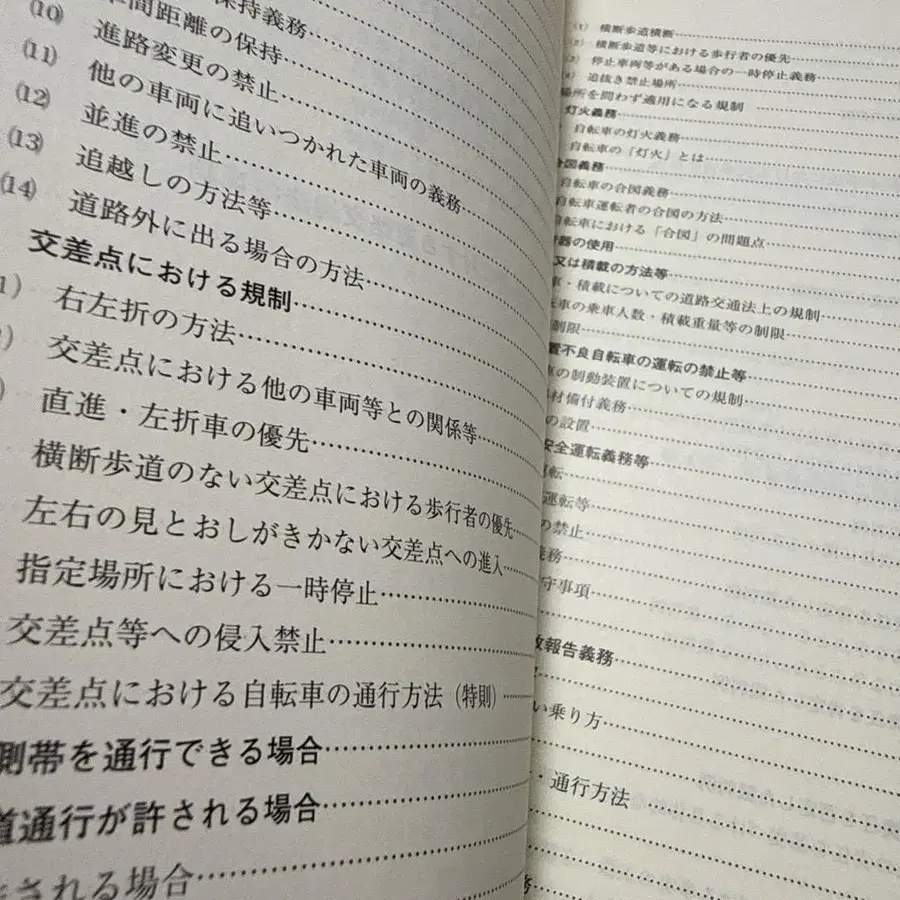 保持義務
(10) 車間距離の保持
(11) 進路変更の禁止
(12) 他の車両に追いつかれた車両の義務
(13) 並進の禁止
(14) 追越しの方法等
道路外に出る場合の方法
交差点における規制
1) 右左折の方法
) 交差点における他の車両等との関係等
) 直進・左折車の優先
横断歩道のない交差点における歩行者の優先
左右の見とおしがきかない交差点への進入
指定場所における一時停止
交差点等への侵入禁止
交差点における自転車の通行方法(特則)
側帯を通行できる場合
道通行が許される場合
される場合
(1) 横断歩道横断
(2) 横断歩道等における歩行者の優先
(3) 停止車両等がある場合の一時停止義務
(4) 追抜き禁止場所
場所を問わず適用になる規制
灯火義務
自転車の灯火義務
自転車の「灯火」とは
合図義務
自転車の合図義務
自転車運転者の合図の方法
自転車における「合図」の問題点
器の使用
又は積載の方法等
・積載についての道路交通法上の規制
車の乗車人数・積載重量等の制限
制限
置不良自転車の運転の禁止等
車の制動装置についての規制
材備付義務
の設置
安全運転義務等
運転
運転等
の禁止
義務
守事項
故報告義務
い乗り方
・通行方法